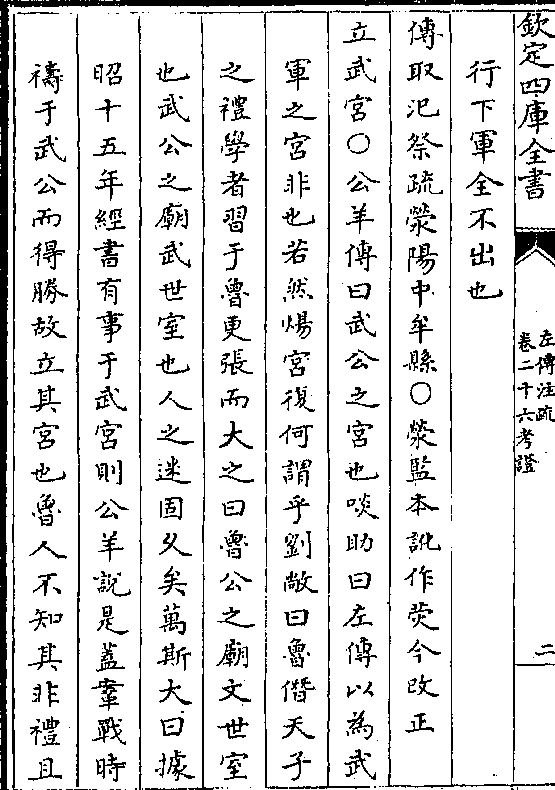 欽定四庫全書
左傳注疏
卷二十六考證
二
行下軍全不出也
傳取汜祭疏滎陽中牟縣○滎監本訛作熒今改正
立武宮○公羊傳曰武公之宮也啖助曰左傳以為武
軍之宮非也若然煬宮復何謂乎劉敞曰魯僭天子
之禮學者習于魯更張而大之曰魯公之廟文世室
也武公之廟武世室也人之迷固乆矣萬斯大曰據
昭十五年經書有事于武宮則公羊說是葢鞌戰時
禱于武公而得勝故立其宮也魯人不知其非禮且